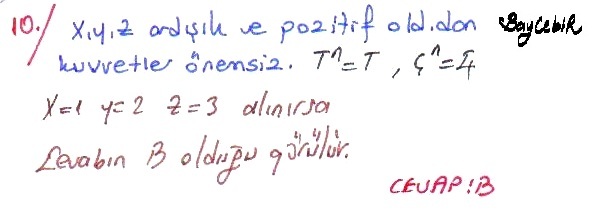 10./ x,y,z ardışık ve pozitif old.dan BayCebiR
kuvvetler önemsiz. Tⁿ=T , Çⁿ=Ç
x=1 y=2 z=3 alınırsa
Cevabın B olduğu görülür.
CEVAP:B